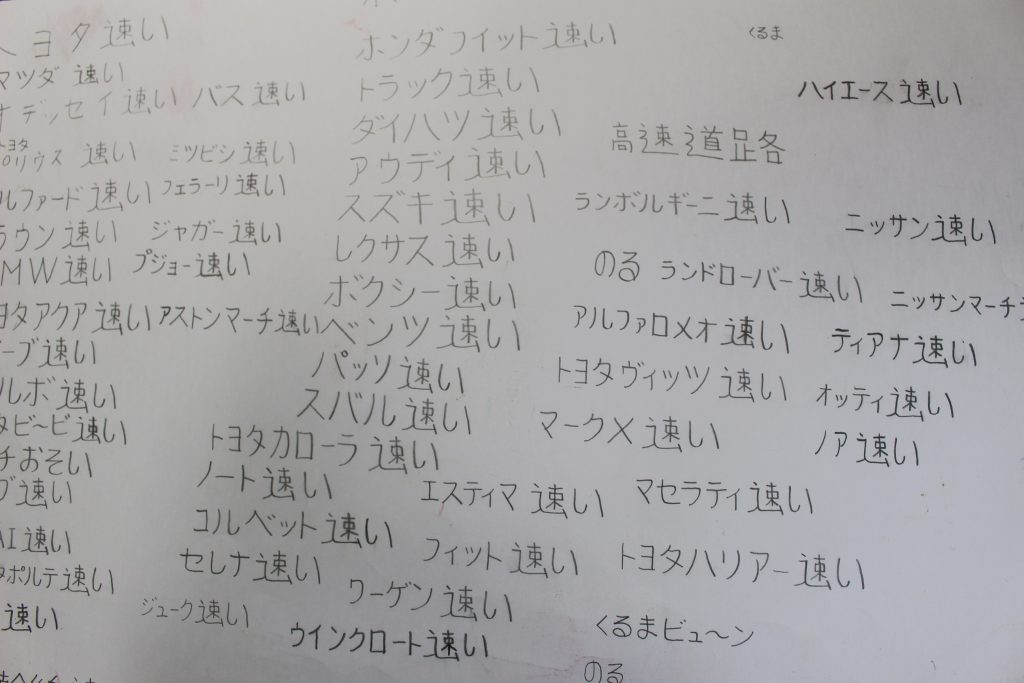 トヨタ速い
マツダ 速い
オデッセイ速い
バス速い
トヨタ
プリウス 速い
ミツビシ速い
アルファード速い
フェラーリ速い
ラウン速い
ジャガー速い
MW速い
プジョー速い
ヨタアクア速い
アストンマーチ速い
ーブ速い
ルボ速い
タビ〜ビ速い
チおそい
ブ速い
AI速い
タポルテ速い
速い
ホンダフィット速い
トラック速い
ダイハツ速い
アウディ速い
スズキ速い
レクサス速い
ボクシー速い
ベンツ速い
パッソ速い
スバル速い
トヨタカローラ速い
ノート速い
コルベット速い
セレナ速い
ジューク速い
エスティマ速い
フィット速い
ワーゲン速い
ウインクロート速い
くるま
ハイエース速い
高速道路
ランボルギーニ速い
ニッサン速い
のる
ランドローバー速い
ニッサンマーチ
アルファロメオ速い
ティアナ速い
トヨタヴィッツ速い
オッティ速い
マークX速い
ノア速い
マセラティ速い
トヨタハリアー速い
くるまビュ〜ン
のる